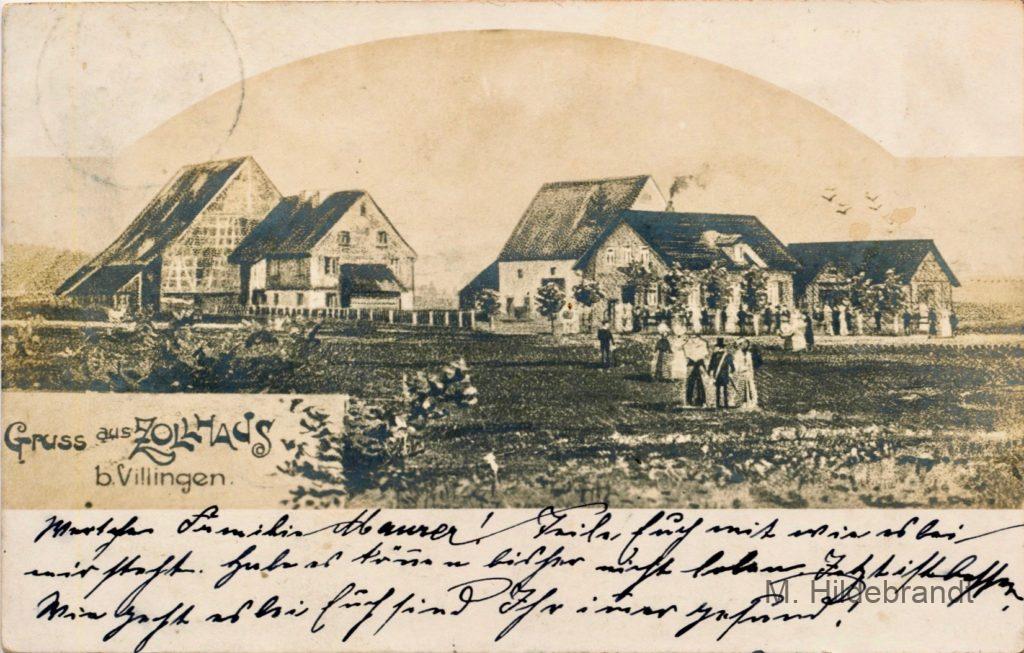 Gruss aus ZOLLHAUS
b. Villingen.
Familie Maurer! Teile Euch mit wie es bei
mir steht. Habe es können bisher nicht
M. Hildebrandt
Wie geht es bei Euch sind Ihr imer gesund!